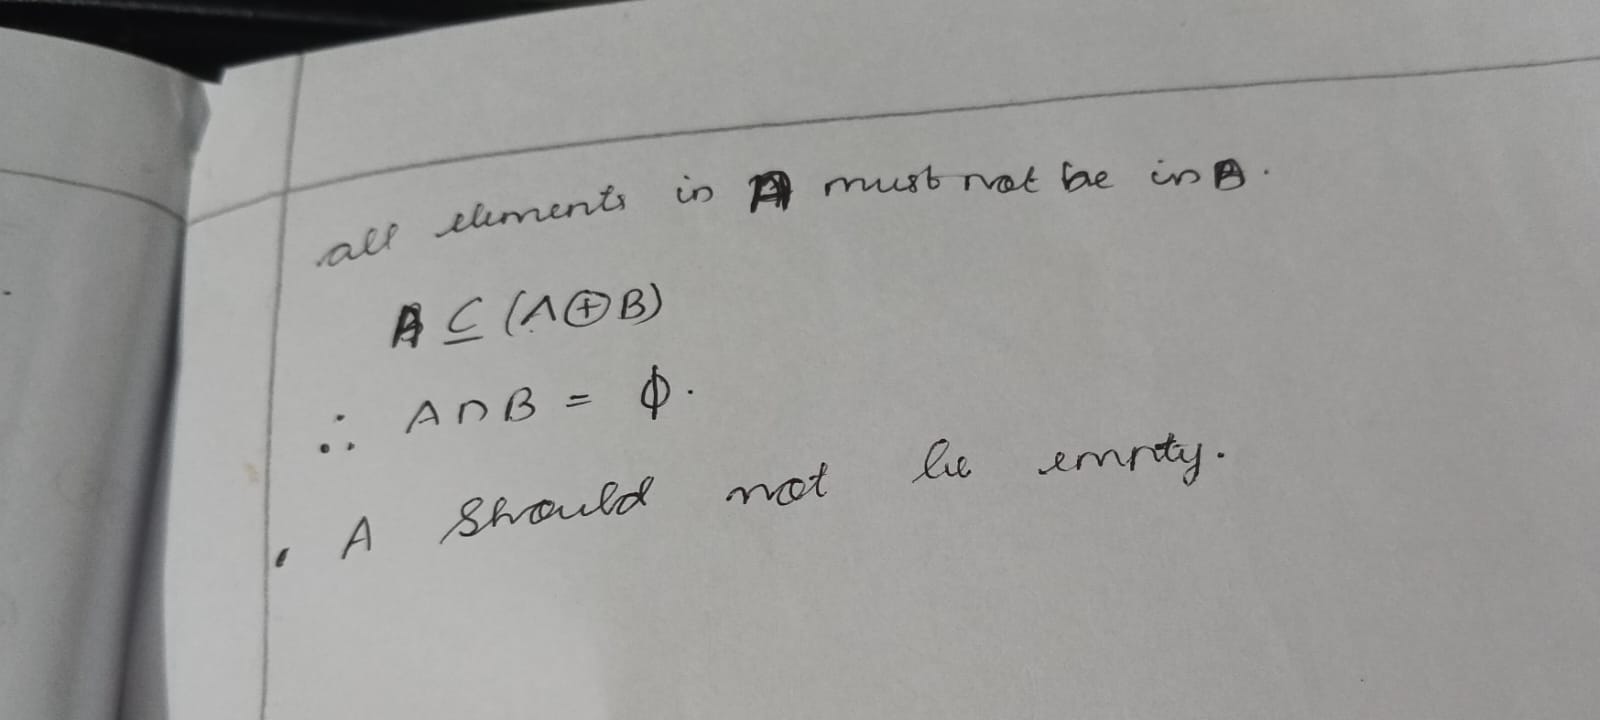 all elements in A must not be in B.
A ⊆ (A⊕B)
∴ A∩B = ϕ.
A should not be empty.